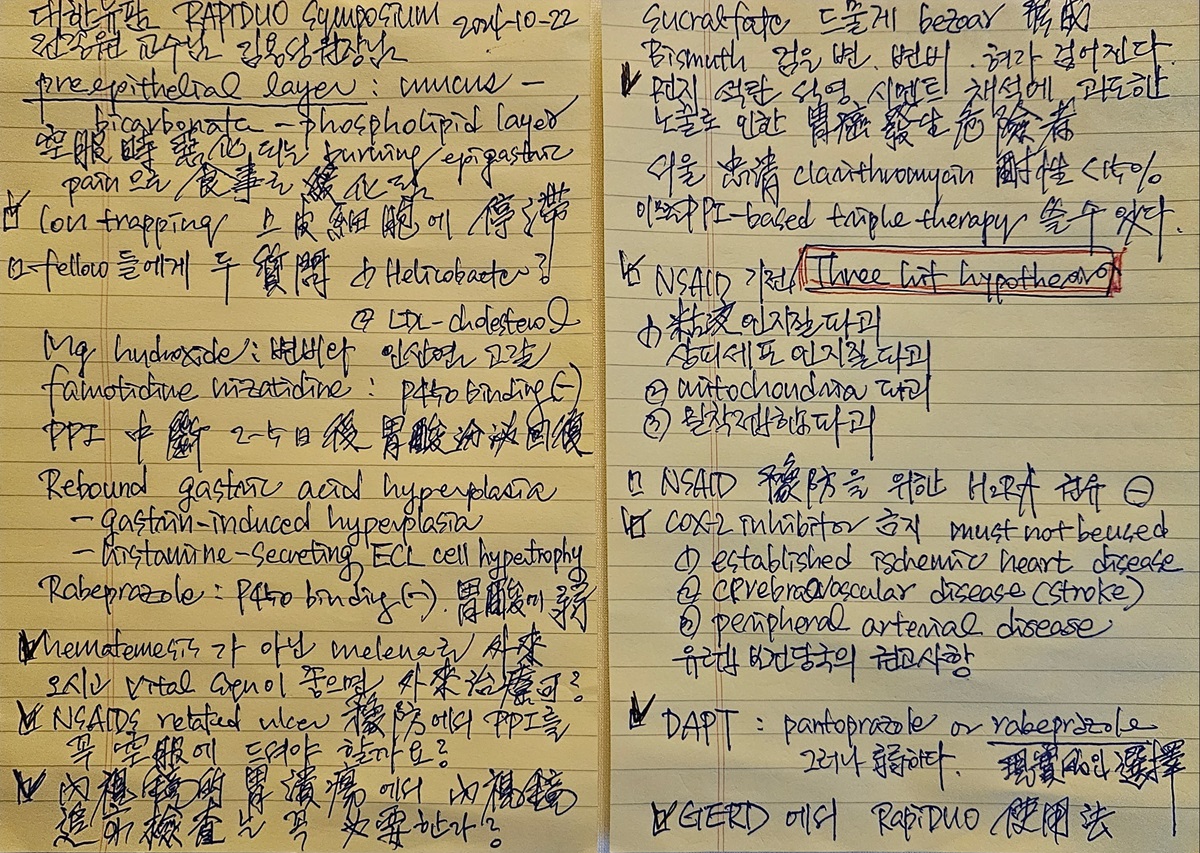 대한유판 RAPIDUO Symposium 2024-10-22
전중원 교수님 김용성 원장님
preepithelial layer : mucus -
bicarbonate - phospholipid layer
空服時 惡化되는 burning/epigastric
pain으로 食事로 緩化됨
Ion trapping 上皮細胞에 停滯
fellow들에게 두 質問 ① Helicobacter?
② LDL-cholesterol
Mg hydroxide : 변비약 인산염 고갈
famotidine nizatidine : P450 binding (-)
PPI 中斷 2-5日 後 胃酸分泌回復
Rebound gastric acid hyperplasia
- gastrin-induced hyperplasia
- histamine-secreting ECL cell hypetrophy
Rabeprazole : P450 binding (-). 胃酸이
hematemesis가 아닌 melena로 外來
오시고 vital sign이 좋으면 外來治療可?
NSAIDs related ulcer 豫防에서 PPI를
꼭 空服에 드셔야 할까요?
內視鏡的 胃潰瘍에서 內視鏡
追跡檢査는 꼭 必要한가?
Sucralfate 드물게 bezoar 形成
Bismuth 검을 변. 변비. 혀가 검어진다.
먼지 석탄 석영 시멘트 채석에 과도한
노출로 인한 胃癌發生危險者
서울 忠淸 clarithromycin 耐性 <15%
PPI-based triple therapy 쓸 수 있다.
NSAID 기전 Three hit hypothesis
① 粘液 인지질 파괴
상피세포 인지질 파괴
② mitochondria 파괴
③ 밀착접합 파괴
NSAID 豫防을 위한 H2RA 권유 ⊖
COX-2 inhibitor 금지 must not be used
① established ischemic heart disease
② cerebravascular disease (stroke)
③ peripheral arterial disease
유럽 보건당국의 권고사항
DAPT : pantoprazole or rabeprazole
그러나 弱하다. 現實的인 選擇
GERD 에서 RapiDUO 使用法